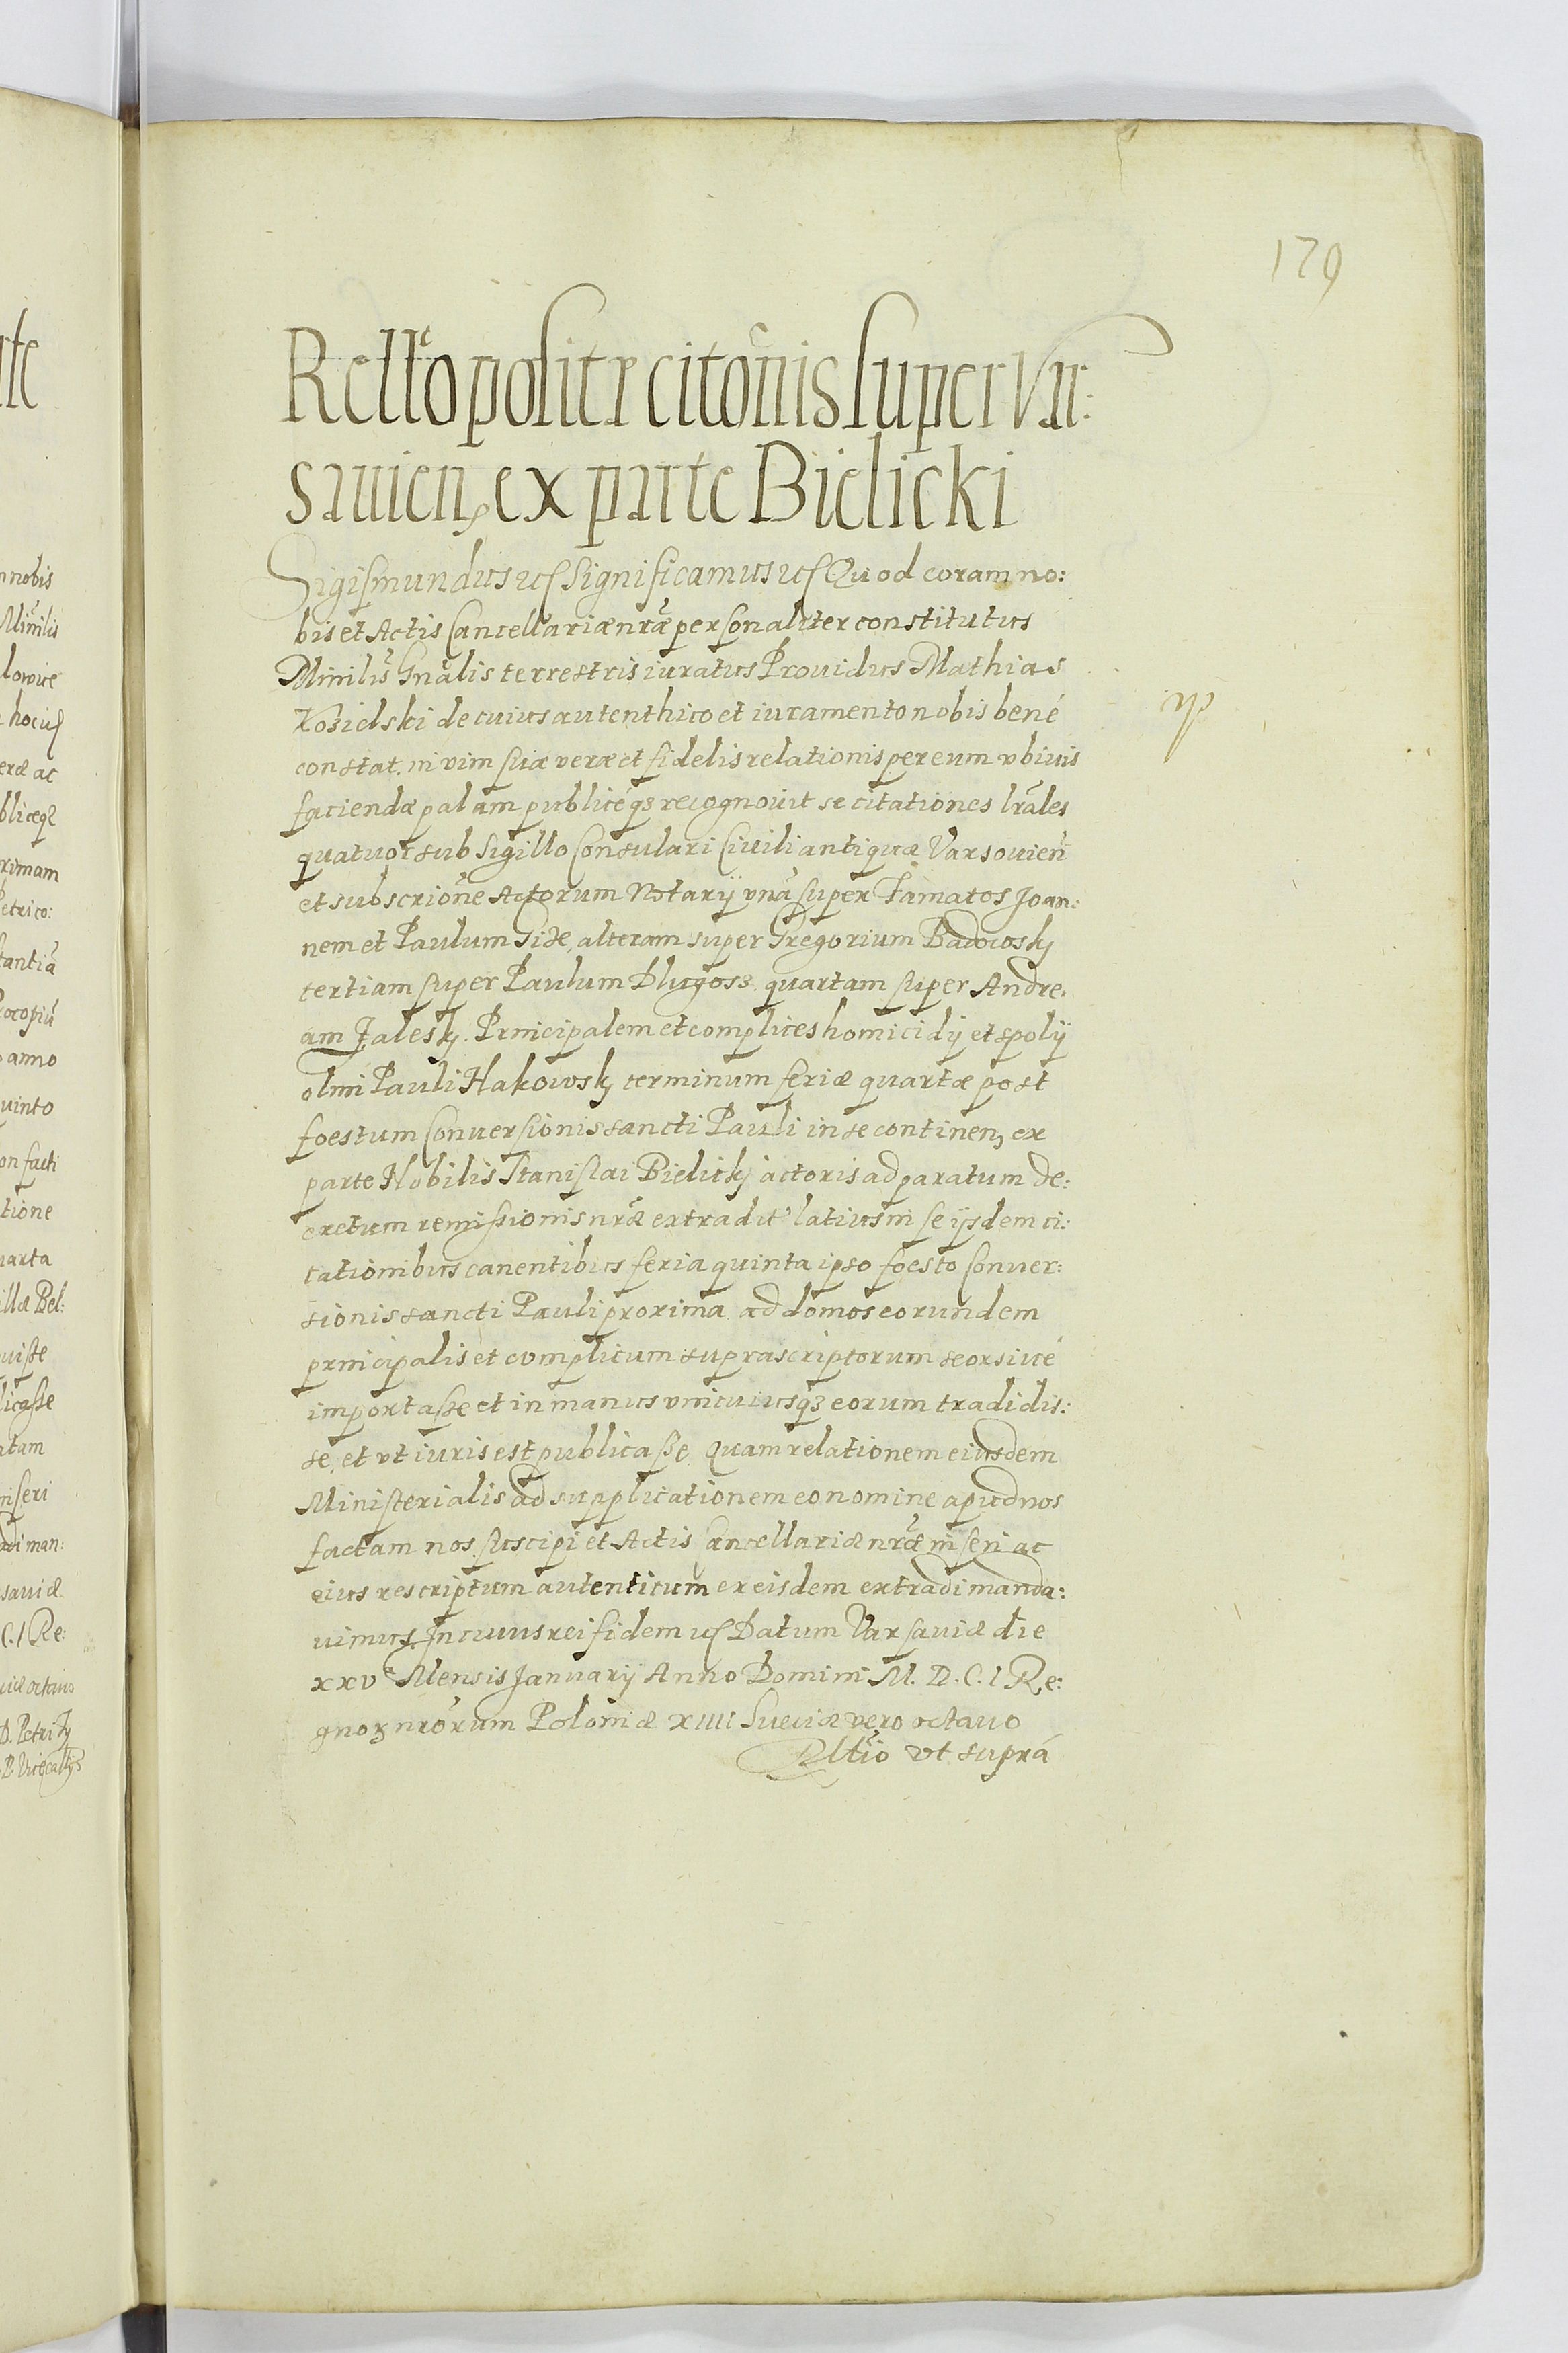 179
Rellõ positæ citõnis super Var:
savien, ex parte Bielicki
Sigismundus etc Significamus etc Quod coram no:
bis et Actis Cancellariæ nrãe personaliter constitutus
Minilis Gnãlis terrestris iuratus Providus Mathias
Kozielski de cuius autenthico et iuramento nobis bené
constat. in vim suæ veræ et fidelis relationis per eum vbiuis
faciendæ palam publicéq3 recognouit se citationes lrãles
quatuor sub Sigillo Consulari Ciuili antiquæ Varsouien
et subscriõne Actorum Notarij vnã super Famatos Joan:
nem et Paulum Gize, alteram super Gregorium Badowsky
tertiam super Paulum Dlugosz. quartam super Andre,
am Zalesky. Principalem et complices homicidij et spolij
olim Pauli Makowsky terminum feriæ quartæ post
foestum Conuersionis sancti Pauli in se continen, ex
parte Nobilis Stanislai Bielicky actoris ad paratum de:
cretum remissionis nrãe extradit latius in se ijsdem ci:
tationibus canentibus feria quinta ipso foesto Conuer:
sionis sancti Pauli proxima ad domos eorundem
principalis et complicum suprascriptorum seorsiué
importasse et in manus vnicuiusq3 eorum tradidis:
se, et vt iuris est publicasse. Quam relationem eiusdem
Ministerialis ad supplicationem eo nomine apud nos
factam nos suscipi et Actis Cancellariæ nrãe inseri ac
eius rescriptum autenticum ex eisdem extradi manda:
uimus. In cuius rei fidem etc Datum Varsaviæ die
xxv Mensis Januarij Anno Domini M. D. C. I Re:
gnoz nrõrum Poloniæ XIIII Sueciæ vero octauo
Rltio vt suprá